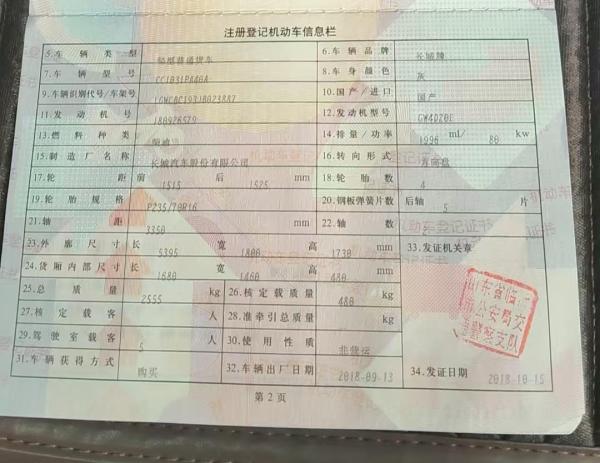 注册登记机动车信息栏
5.车辆类型 轻型普通货车 6.车辆品牌 长城牌
7.车辆型号 CC1031PA40A 8.车身颜色 灰
9.车辆识别代号/车架号 10.国产/进口 国产
11.发动机号 180926579 12.发动机型号 GW4D20E
13.燃料种类 柴油 14.排量/功率 1996 ml/ 80 kw
15.制造厂名称 长城汽车股份有限公司 16.转向形式 方向盘
17.轮距 前 1515 后 1525 mm 18.轮胎数 4
19.轮胎规格 P235/70R16 20.钢板弹簧片数 后轴 5 片
21.轴距 3350 mm 22.轴数
23.外廓尺寸 长 5395 宽 1800 高 1730 mm 33.发证机关章
24.货厢内部尺寸 长 1680 宽 1460 高 480 mm
25.总质量 2555 kg 26.核定载质量 480 kg
27.核定载客 人 28.准牵引总质量 kg
29.驾驶室载客 5 人 30.使用性质 非营运
31.车辆获得方式 购买 32.车辆出厂日期 2018-09-13 34.发证日期 2018-10-15
山东省临沂
市公安局交
通警察支队
第2页